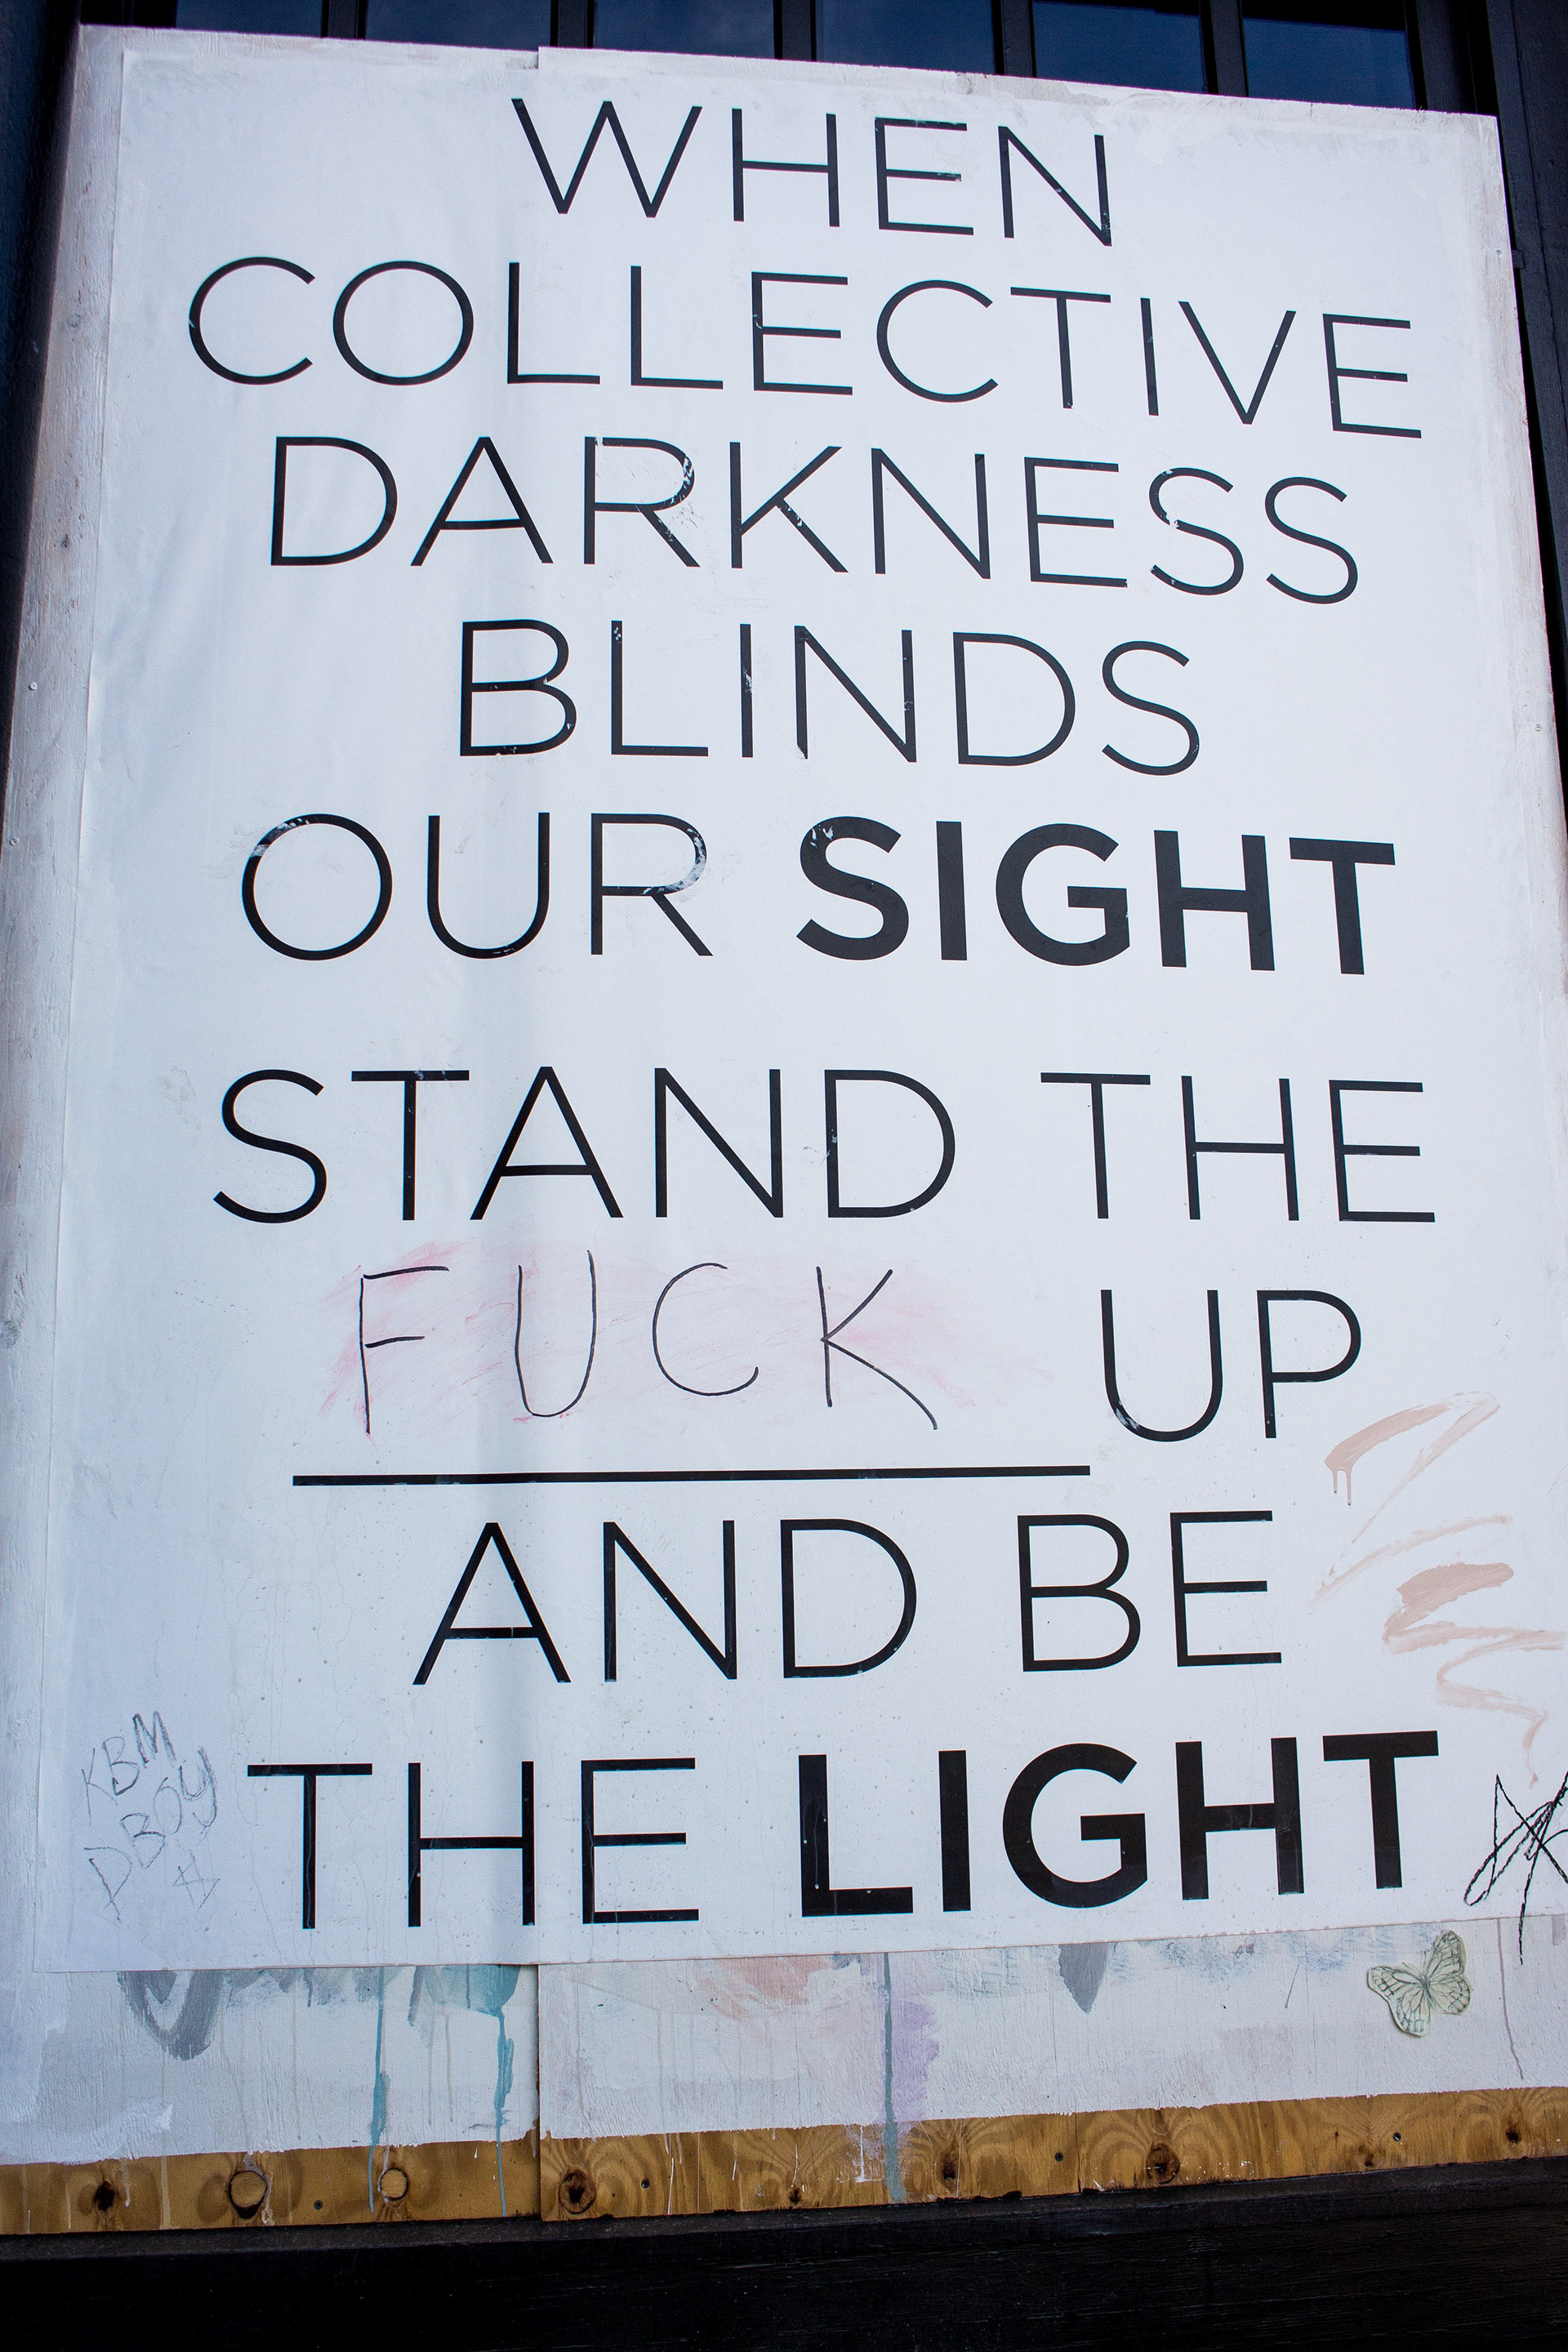 WHEN
COLLECTIVE
DARKNESS
BLINDS
OUR SIGHT
STAND THE
FUCK UP
AND BE
THE LIGHT
KBM
DBOY